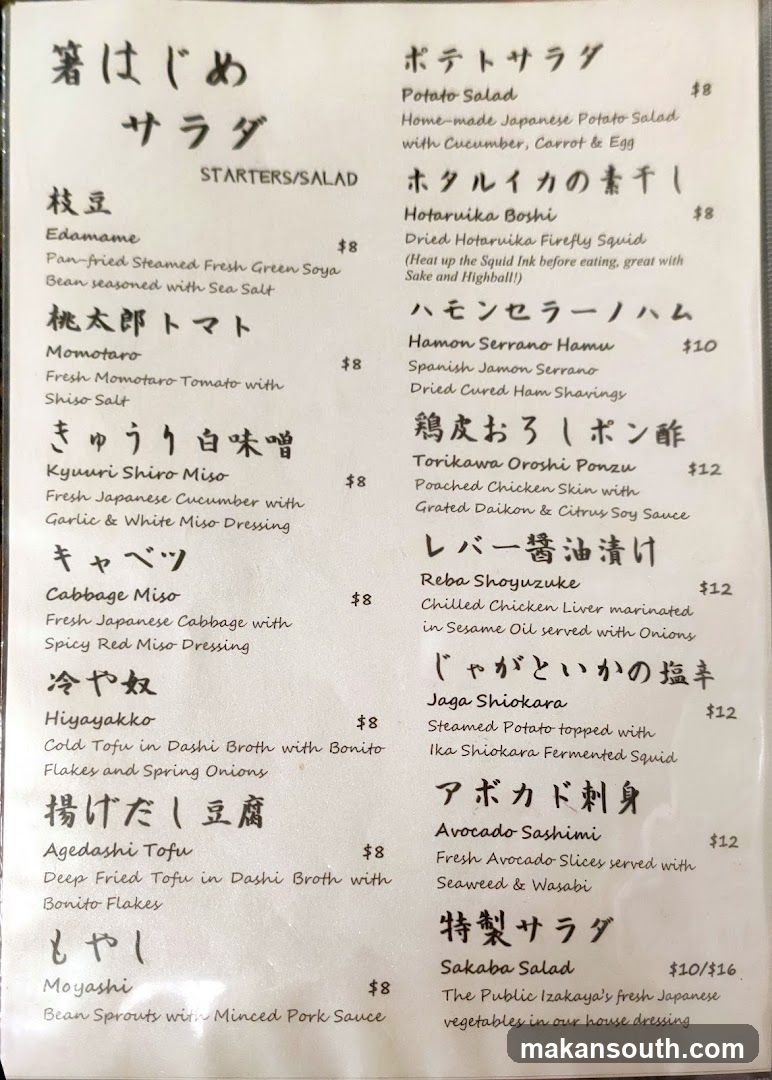 箸はじめ
サラダ
STARTERS/SALAD
枝豆
Edamame
$8
Pan-fried Steamed Fresh Green Soya
Bean seasoned with Sea Salt
桃太郎トマト
Momotaro
$8
Fresh Momotaro Tomato with
Shiso Salt
きゅうり白味噌
Kyuuri Shiro Miso
$8
Fresh Japanese Cucumber with
Garlic & White Miso Dressing
キャベツ
Cabbage Miso
$8
Fresh Japanese Cabbage with
Spicy Red Miso Dressing
冷や奴
Hiyayakko
$8
Cold Tofu in Dashi Broth with Bonito
Flakes and Spring Onions
揚げだし豆腐
Agedashi Tofu
$8
Deep Fried Tofu in Dashi Broth with
Bonito Flakes
もやし
Moyashi
$8
Bean Sprouts with Minced Pork Sauce
ポテトサラダ
Potato Salad
$8
Home-made Japanese Potato Salad
with Cucumber, Carrot & Egg
ホタルイカの素干し
Hotaruika Boshi
$8
Dried Hotaruika Firefly Squid
(Heat up the Squid Ink before eating, great with
Sake and Highball!)
ハモンセラーノハム
Hamon Serrano Hamu
$10
Spanish Jamon Serrano
Dried Cured Ham Shavings
鶏皮おろしポン酢
Torikawa Oroshi Ponzu
$12
Poached Chicken Skin with
Grated Daikon & Citrus Soy Sauce
レバー醤油漬け
Reba Shoyuzuke
$12
Chilled Chicken Liver marinated
in Sesame Oil served with Onions
じゃがといかの塩辛
Jaga Shiokara
$12
Steamed Potato topped with
Ika Shiokara Fermented Squid
アボカド刺身
Avocado Sashimi
$12
Fresh Avocado Slices served with
Seaweed & Wasabi
特製サラダ
Sakaba Salad
$10/$16
The Public Izakaya's fresh Japanese
vegetables in our house dressing
makansouth.com